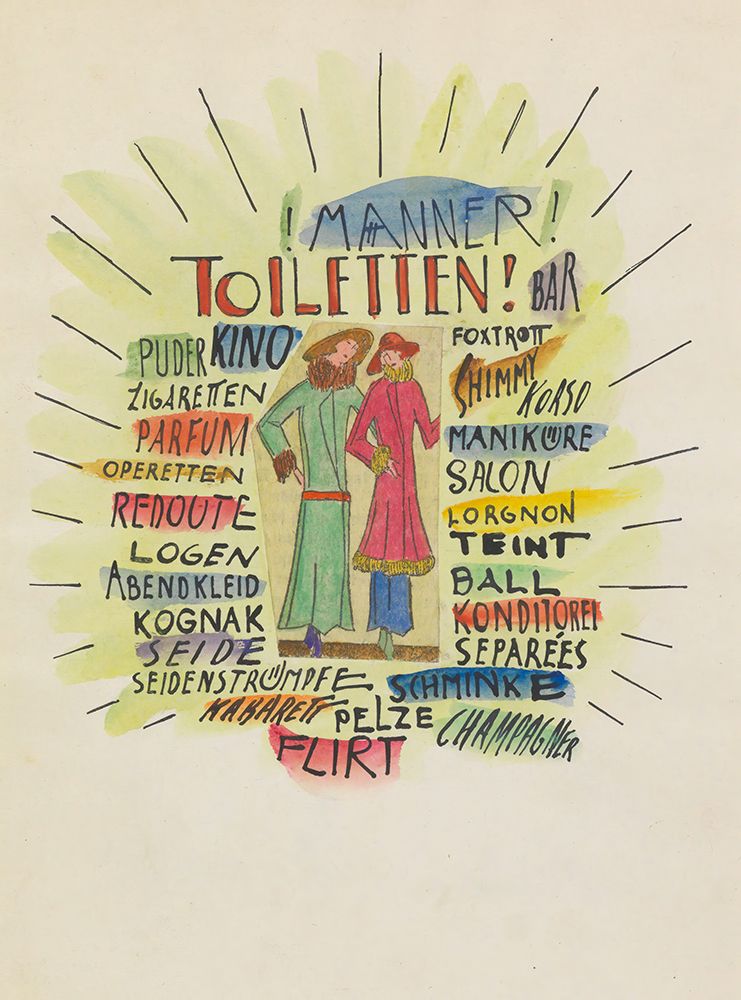 ! MÄNNER!
TOILETTEN!
BAR
PUDER
KINO
ZIGARETTEN
PARFUM
OPERETTEN
REDOUTE
LOGEN
ABENDKLEID
KOGNAK
SEIDE
SEIDENSTRÜMPFE
KABARETT
PELZE
FLIRT
FOXTROTT
SHIMMY
KORSO
MANIKÜRE
SALON
LORGNON
TEINT
BALL
KONDITOREI
SEPARÉES
SCHMINKE
CHAMPAGNER